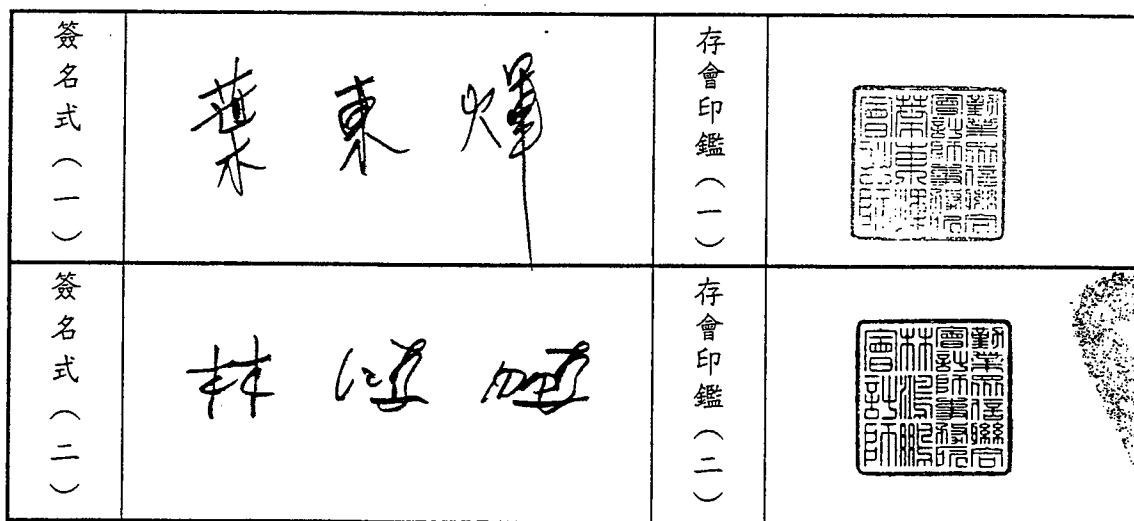 簽名式(一)
葉東煇
存會印鑑(一)
勤業眾信聯合
會計師事務所
葉東煇
會計師
簽名式(二)
林鴻鵬
存會印鑑(二)
勤業眾信聯合
會計師事務所
林鴻鵬
會計師